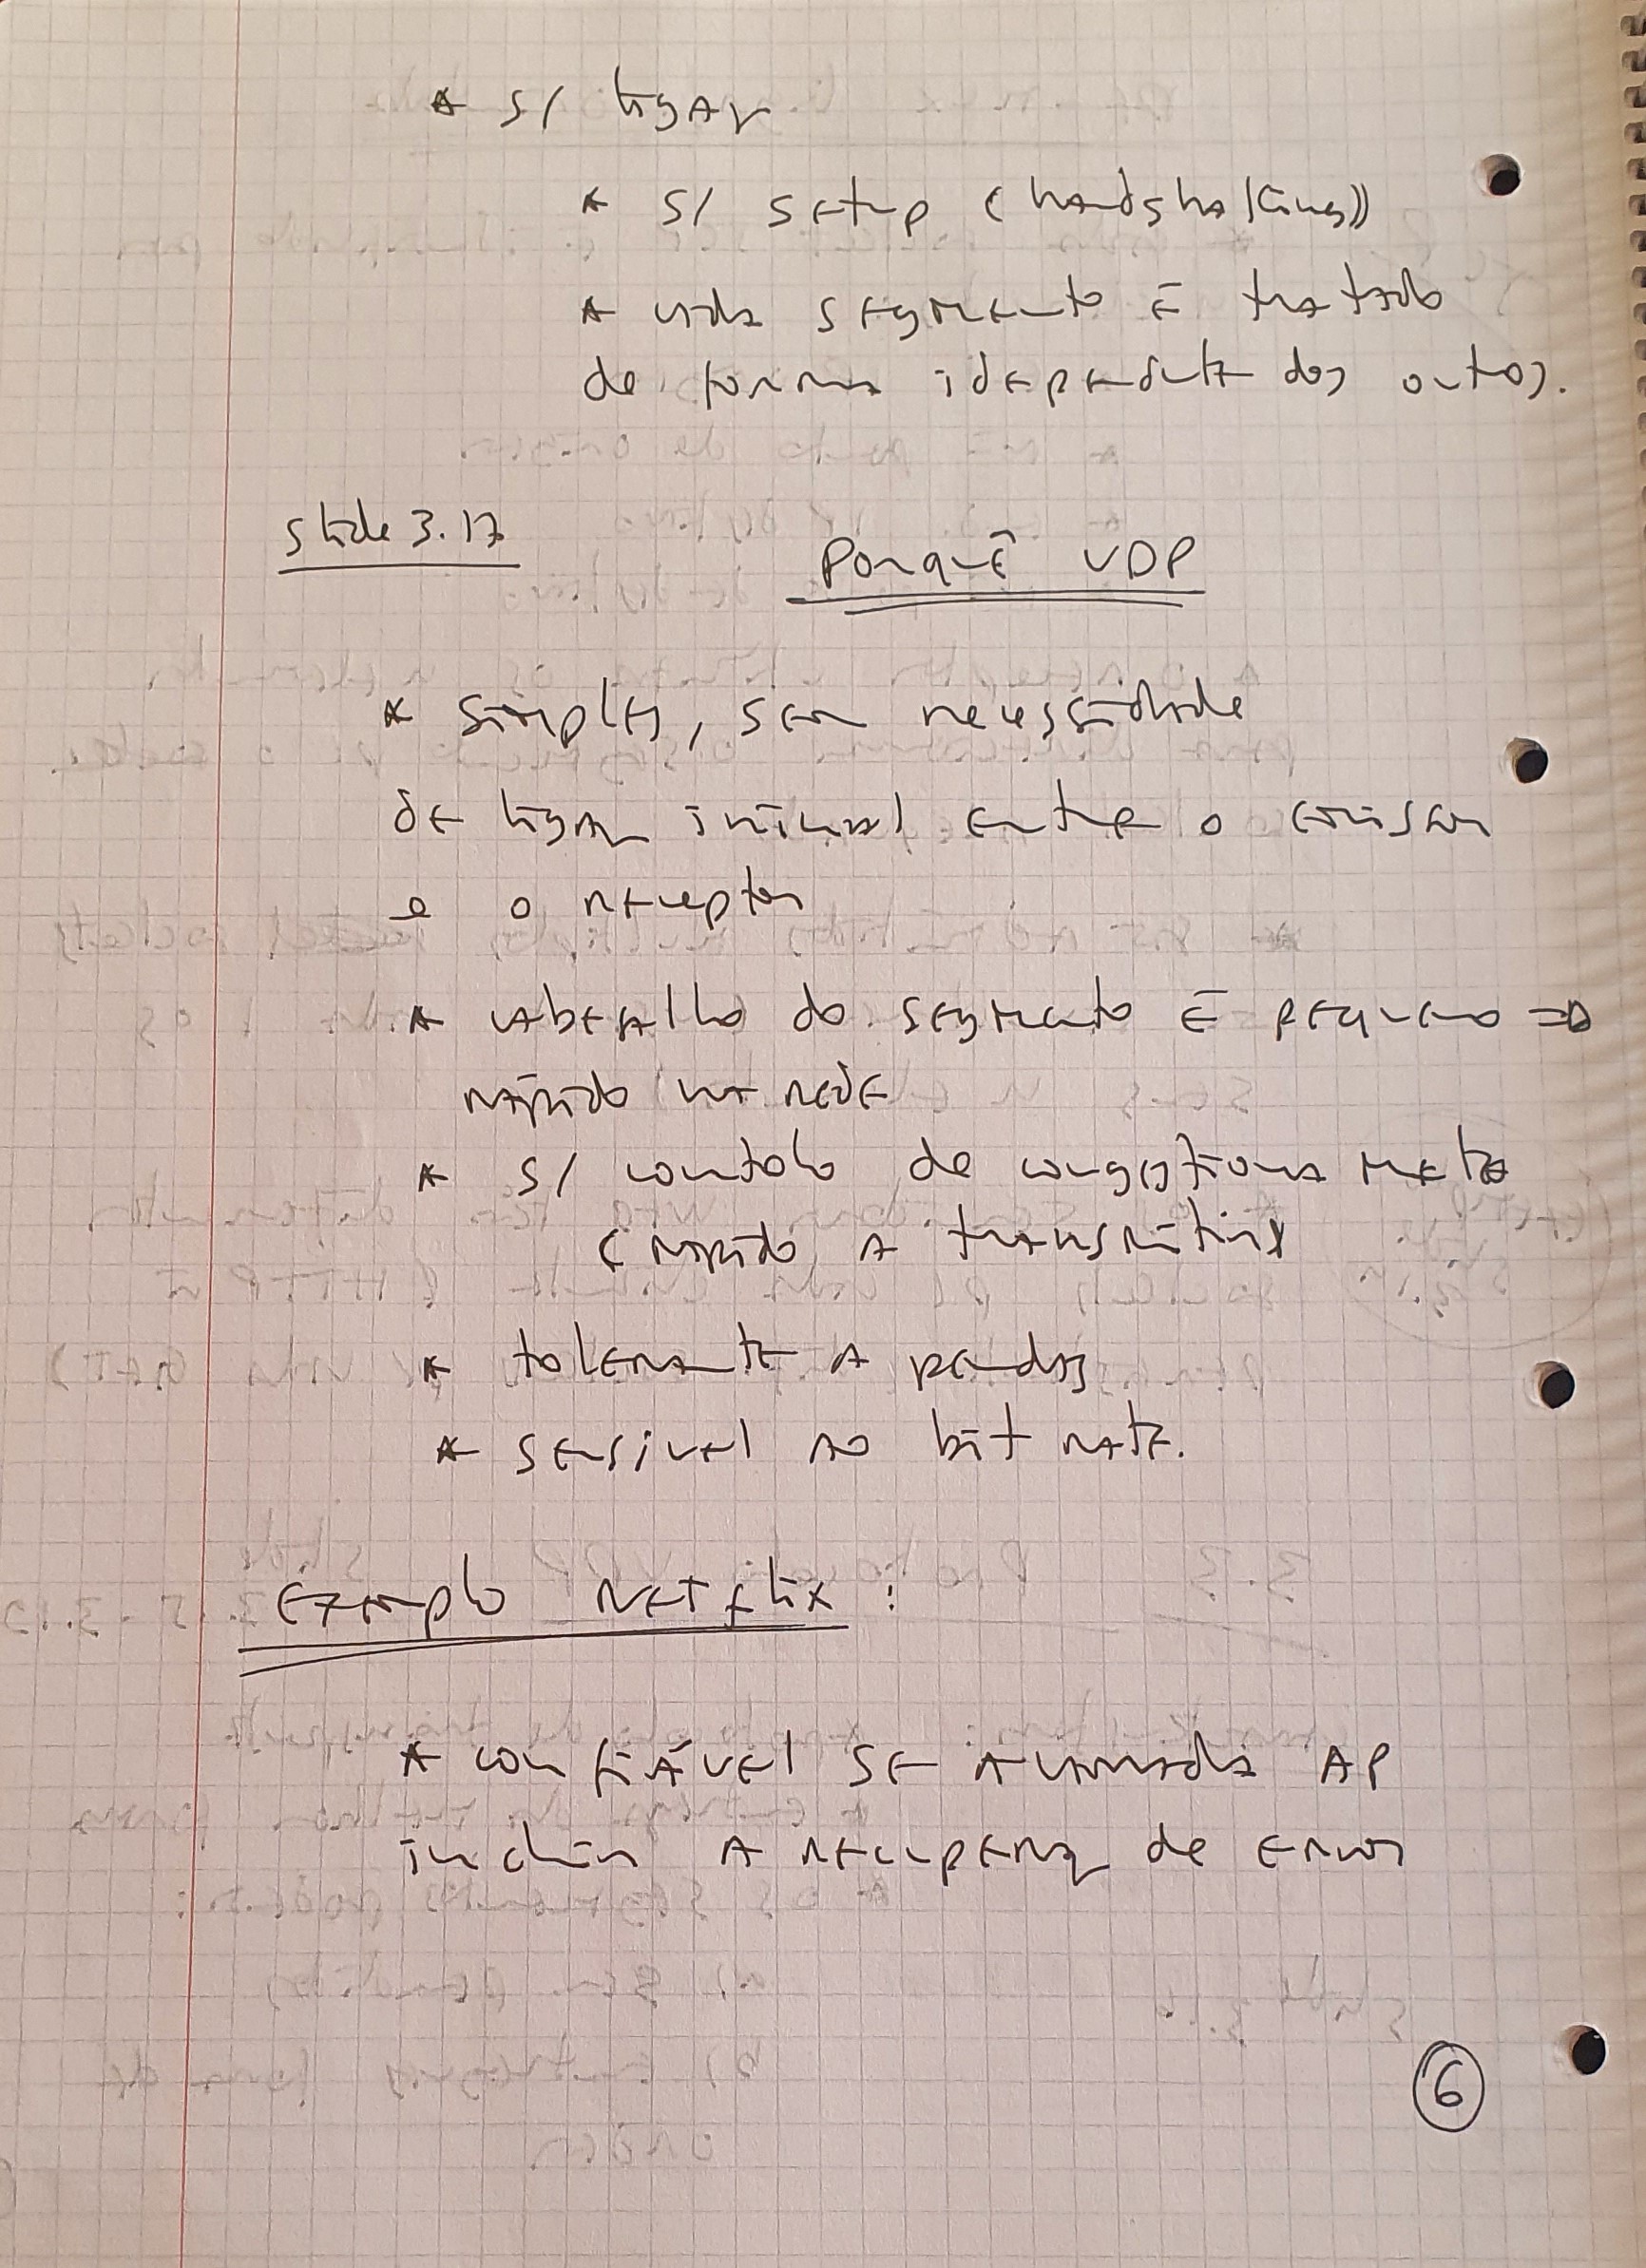 * s/ ligaç
* s/ setup (handshaking)
* cada segmento é tratado
de forma idependente dos outros.
slide 3.17
Porquê UDP
* simples, sem necessidade
de ligaç inicial entre o emissor
e o receptor
* cabeçalho do segmento é pequeno =>
rápido na rede
* s/ controlo de congestionamento
(rápido a transmitir)
* tolerante a perdas
* sensivel ao bit rate.
Exemplo Netflix :
* confiável se a camada AP
incluir a recuperaç de erros
6